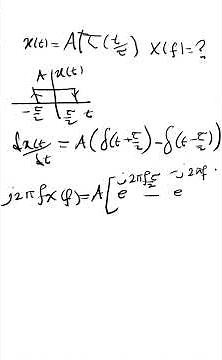 x(t) = AΠ(t/τ) X(f) = ?
A x(t)
-τ/2 τ/2 t
dx(t)/dt = A(δ(t+τ/2) - δ(t-τ/2))
j2πfX(f) = A[e^{j2πfτ/2} - e^{-j2πf